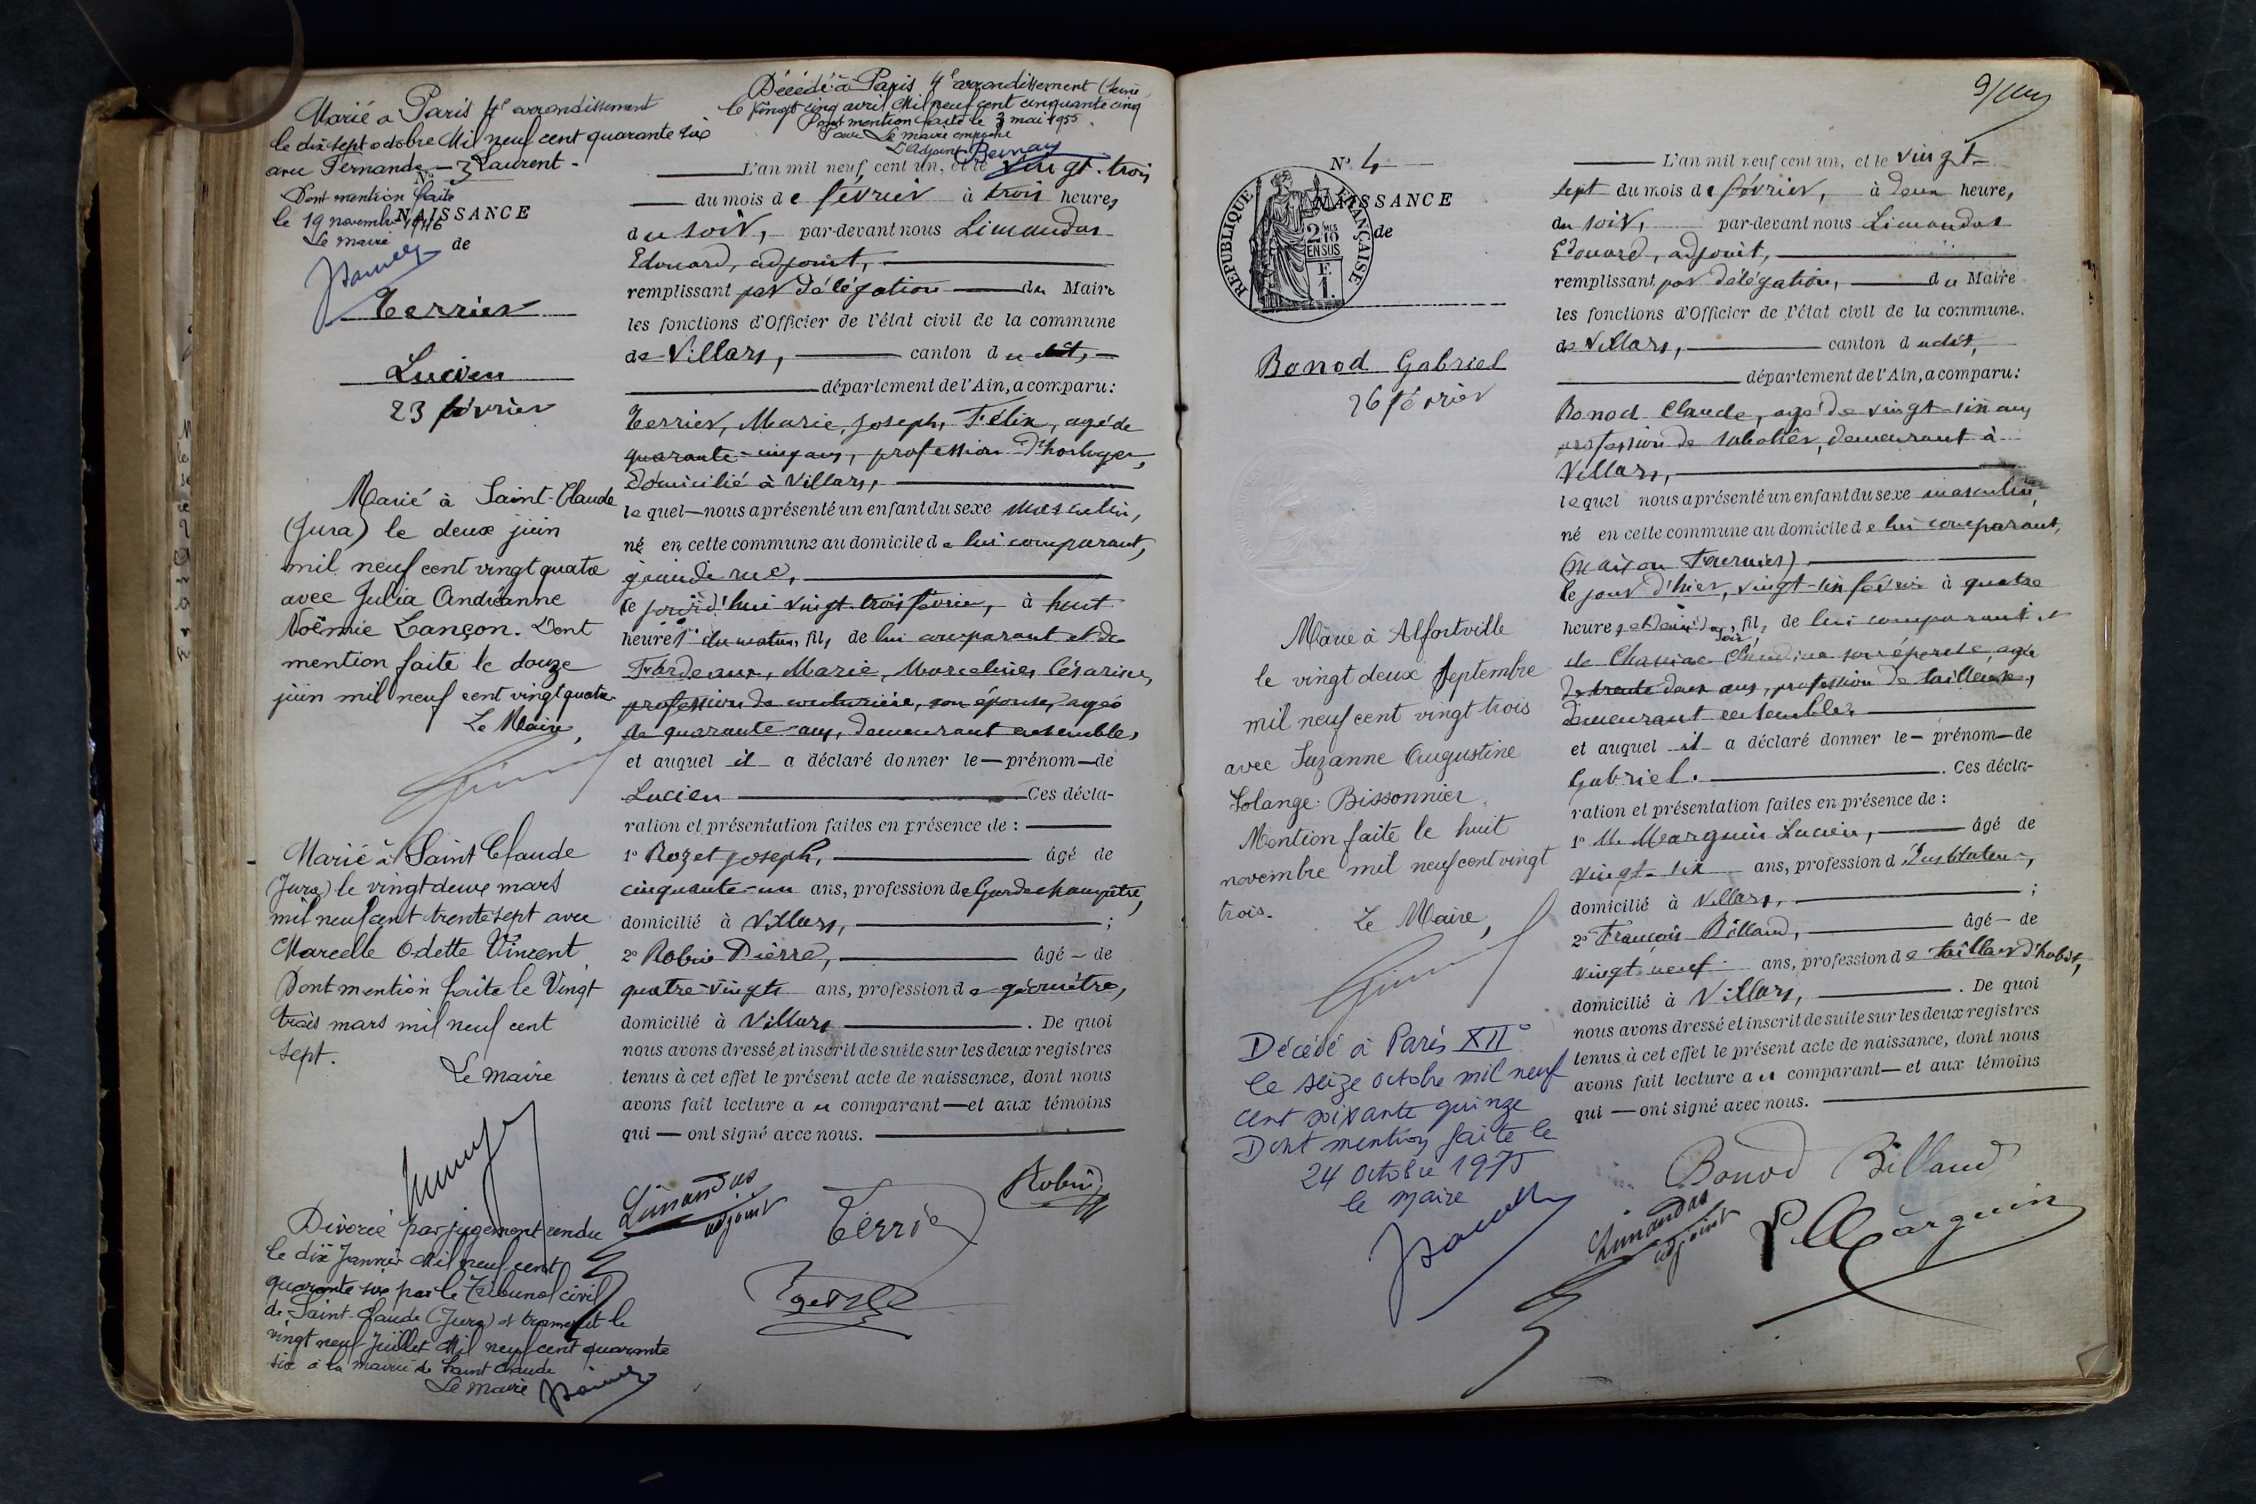 Marié à Paris 4e arrondissement
le dix sept octobre Mil neuf cent quarante six
avec Fernande Laurent.
Dont mention faite
le 19 novembre 1946
Le Maire
Décédé à Paris 4e arrondissement (Seine)
le vingt cinq avril Mil neuf cent cinquante cinq
Dont mention faite le 3 mai 1955.
Le maire
L'Adjoint
No 3
NAISSANCE
de
Terrier
Lucien
23 février
Marié à Saint-Claude
(Jura) le deux juin
mil neuf cent vingt quatre
avec Julia Andréanne
Noëmie Lançon. Dont
mention faite le douze
juin mil neuf cent vingt quatre
Le Maire,
Marié à Saint Claude
(Jura) le vingt deux mars
mil neuf cent trente sept avec
Marcelle Odette Vincent
Dont mention faite le Vingt
trois mars mil neuf cent
sept.
Le Maire
Divorcé par jugement rendu
le dix Janvier Mil neuf cent
quarante six par le Tribunal civil
de Saint-Claude (Jura) et transcrit le
vingt neuf Juillet Mil neuf cent quarante
six à la mairie de Saint Claude
Le Maire
L'an mil neuf cent un, et le vingt-trois
du mois de février à trois heures
du soir, par-devant nous Limandas
Edouard, adjoint,
remplissant par délégation du Maire
les fonctions d'Officier de l'état civil de la commune
de Villars, canton du dit,
département de l'Ain, a comparu:
Terrier, Marie, Joseph, Félix, agé de
quarante-cinq ans, profession d'horloger,
domicilié à Villars,
lequel nous a présenté un enfant du sexe masculin,
né en cette commune au domicile de lui comparant,
grande rue,
le jourd'hui vingt-trois février, à huit
heures du matin, fils de lui comparant et de
Marie, Marceline, Césarine,
profession de couturière, son épouse, agée
de quarante ans, demeurant ensemble,
et auquel il a déclaré donner le prénom de
Lucien Ces décla-
ration et présentation faites en présence de :
1o Rozet Joseph, âgé de
cinquante-un ans, profession de Garde champêtre,
domicilié à Villars, ;
2o Robin Pierre, âgé de
quatre-vingts ans, profession de géomètre,
domicilié à Villars . De quoi
nous avons dressé et inscrit de suite sur les deux registres
tenus à cet effet le présent acte de naissance, dont nous
avons fait lecture au comparant et aux témoins
qui ont signé avec nous.
Limandas
adjoint
Terrier
Robin
No 4
NAISSANCE
de
RÉPUBLIQUE FRANÇAISE
2 MES
10
EN SUS
F.
1.
Bonod Gabriel
26 février
Marié à Alfortville
le vingt deux Septembre
mil neuf cent vingt trois
avec Suzanne Augustine
Solange Bissonnier
Mention faite le huit
novembre mil neuf cent vingt
trois.
Le Maire,
Décédé à Paris XIIe
le seize octobre mil neuf
cent soixante quinze
Dont mention faite le
24 octobre 1975
le maire
L'an mil neuf cent un, et le vingt-
sept du mois de février, à deux heures,
du soir, par-devant nous Limandas
Edouard, adjoint,
remplissant par délégation, du Maire
les fonctions d'Officier de l'état civil de la commune.
de Villars, canton du dit,
département de l'Ain, a comparu:
Bonod Claude, agé de vingt-six ans
profession de sabotier, demeurant à
Villars,
lequel nous a présenté un enfant du sexe masculin
né en cette commune au domicile de lui comparant,
(maison Fournier)
le jour d'hier, vingt-six février à quatre
heures et demie du soir, fils de lui comparant et
de Claudine son épouse, agée
de trente deux ans, profession de tailleuse,
demeurant ensemble,
et auquel il a déclaré donner le prénom de
Gabriel. . Ces décla-
ration et présentation faites en présence de :
1o M. Marguin Lucien, âgé de
vingt-six ans, profession d'Instituteur,
domicilié à Villars, ;
2o François Billaud, âgé de
vingt neuf ans, profession de tailleur d'habits,
domicilié à Villars, . De quoi
nous avons dressé et inscrit de suite sur les deux registres
tenus à cet effet le présent acte de naissance, dont nous
avons fait lecture au comparant et aux témoins
qui ont signé avec nous.
Bonod Billaud
Limandas
adjoint
L Marguin